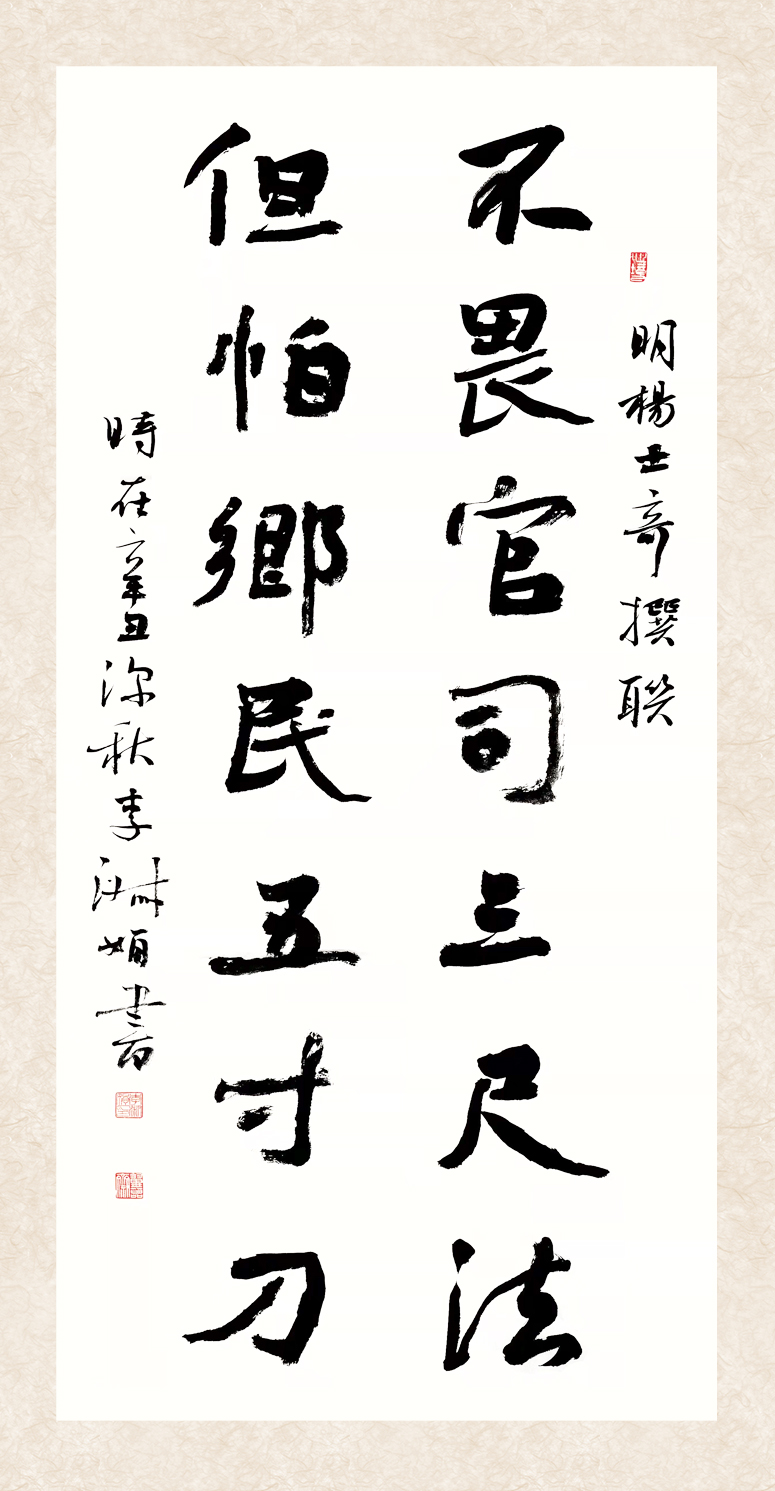 明楊士奇撰联
不畏官司三尺法
但怕鄉民五寸刀
時在辛丑深秋李淋
書